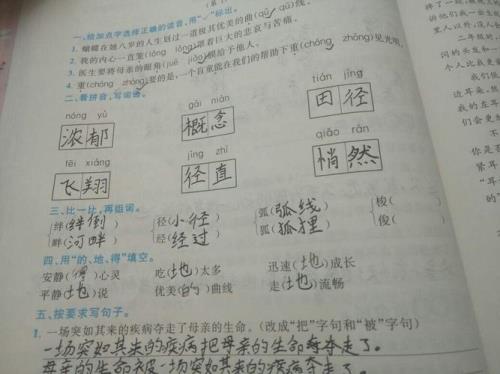 一、给加点字选择正确的读音,用“✓”标出。
1. 蝴蝶在她八岁的人生划过一道极其优美的曲(qū qǔ)线。
2. 我的内心一直笼(lóng lǒng)罩着巨大的悲哀与苦痛。
3. 医生要将母亲的眼角(jué jiǎo)膜给予他人。
4. 重(chóng zhòng)要的是,一个盲童能在我们的帮助下重(chóng zhòng)见光明。
二、看拼音,写词语。
nóng yù gài niàn tián jìng
浓郁 概念 田径
fēi xiáng jìng zhí qiǎo rán
飞翔 径直 悄然
三、比一比,再组词。
绊(绊倒) 径(小径) 弧(弧线) 梭( )
畔(河畔) 经(经过) 狐(狐狸) 俊( )
四、用“的、地、得”填空。
安静(得)心灵 吃(地)太多 迅速(地)成长
平静(地)说 优美(的)曲线 走(地)流畅
五、按要求写句子。
1. 一场突如其来的疾病夺走了母亲的生命。(改成“把”字句和“被”字句)
一场突如其来的疾病把母亲的生命夺走了。
母亲的生命被一场突如其来的疾病夺走了。